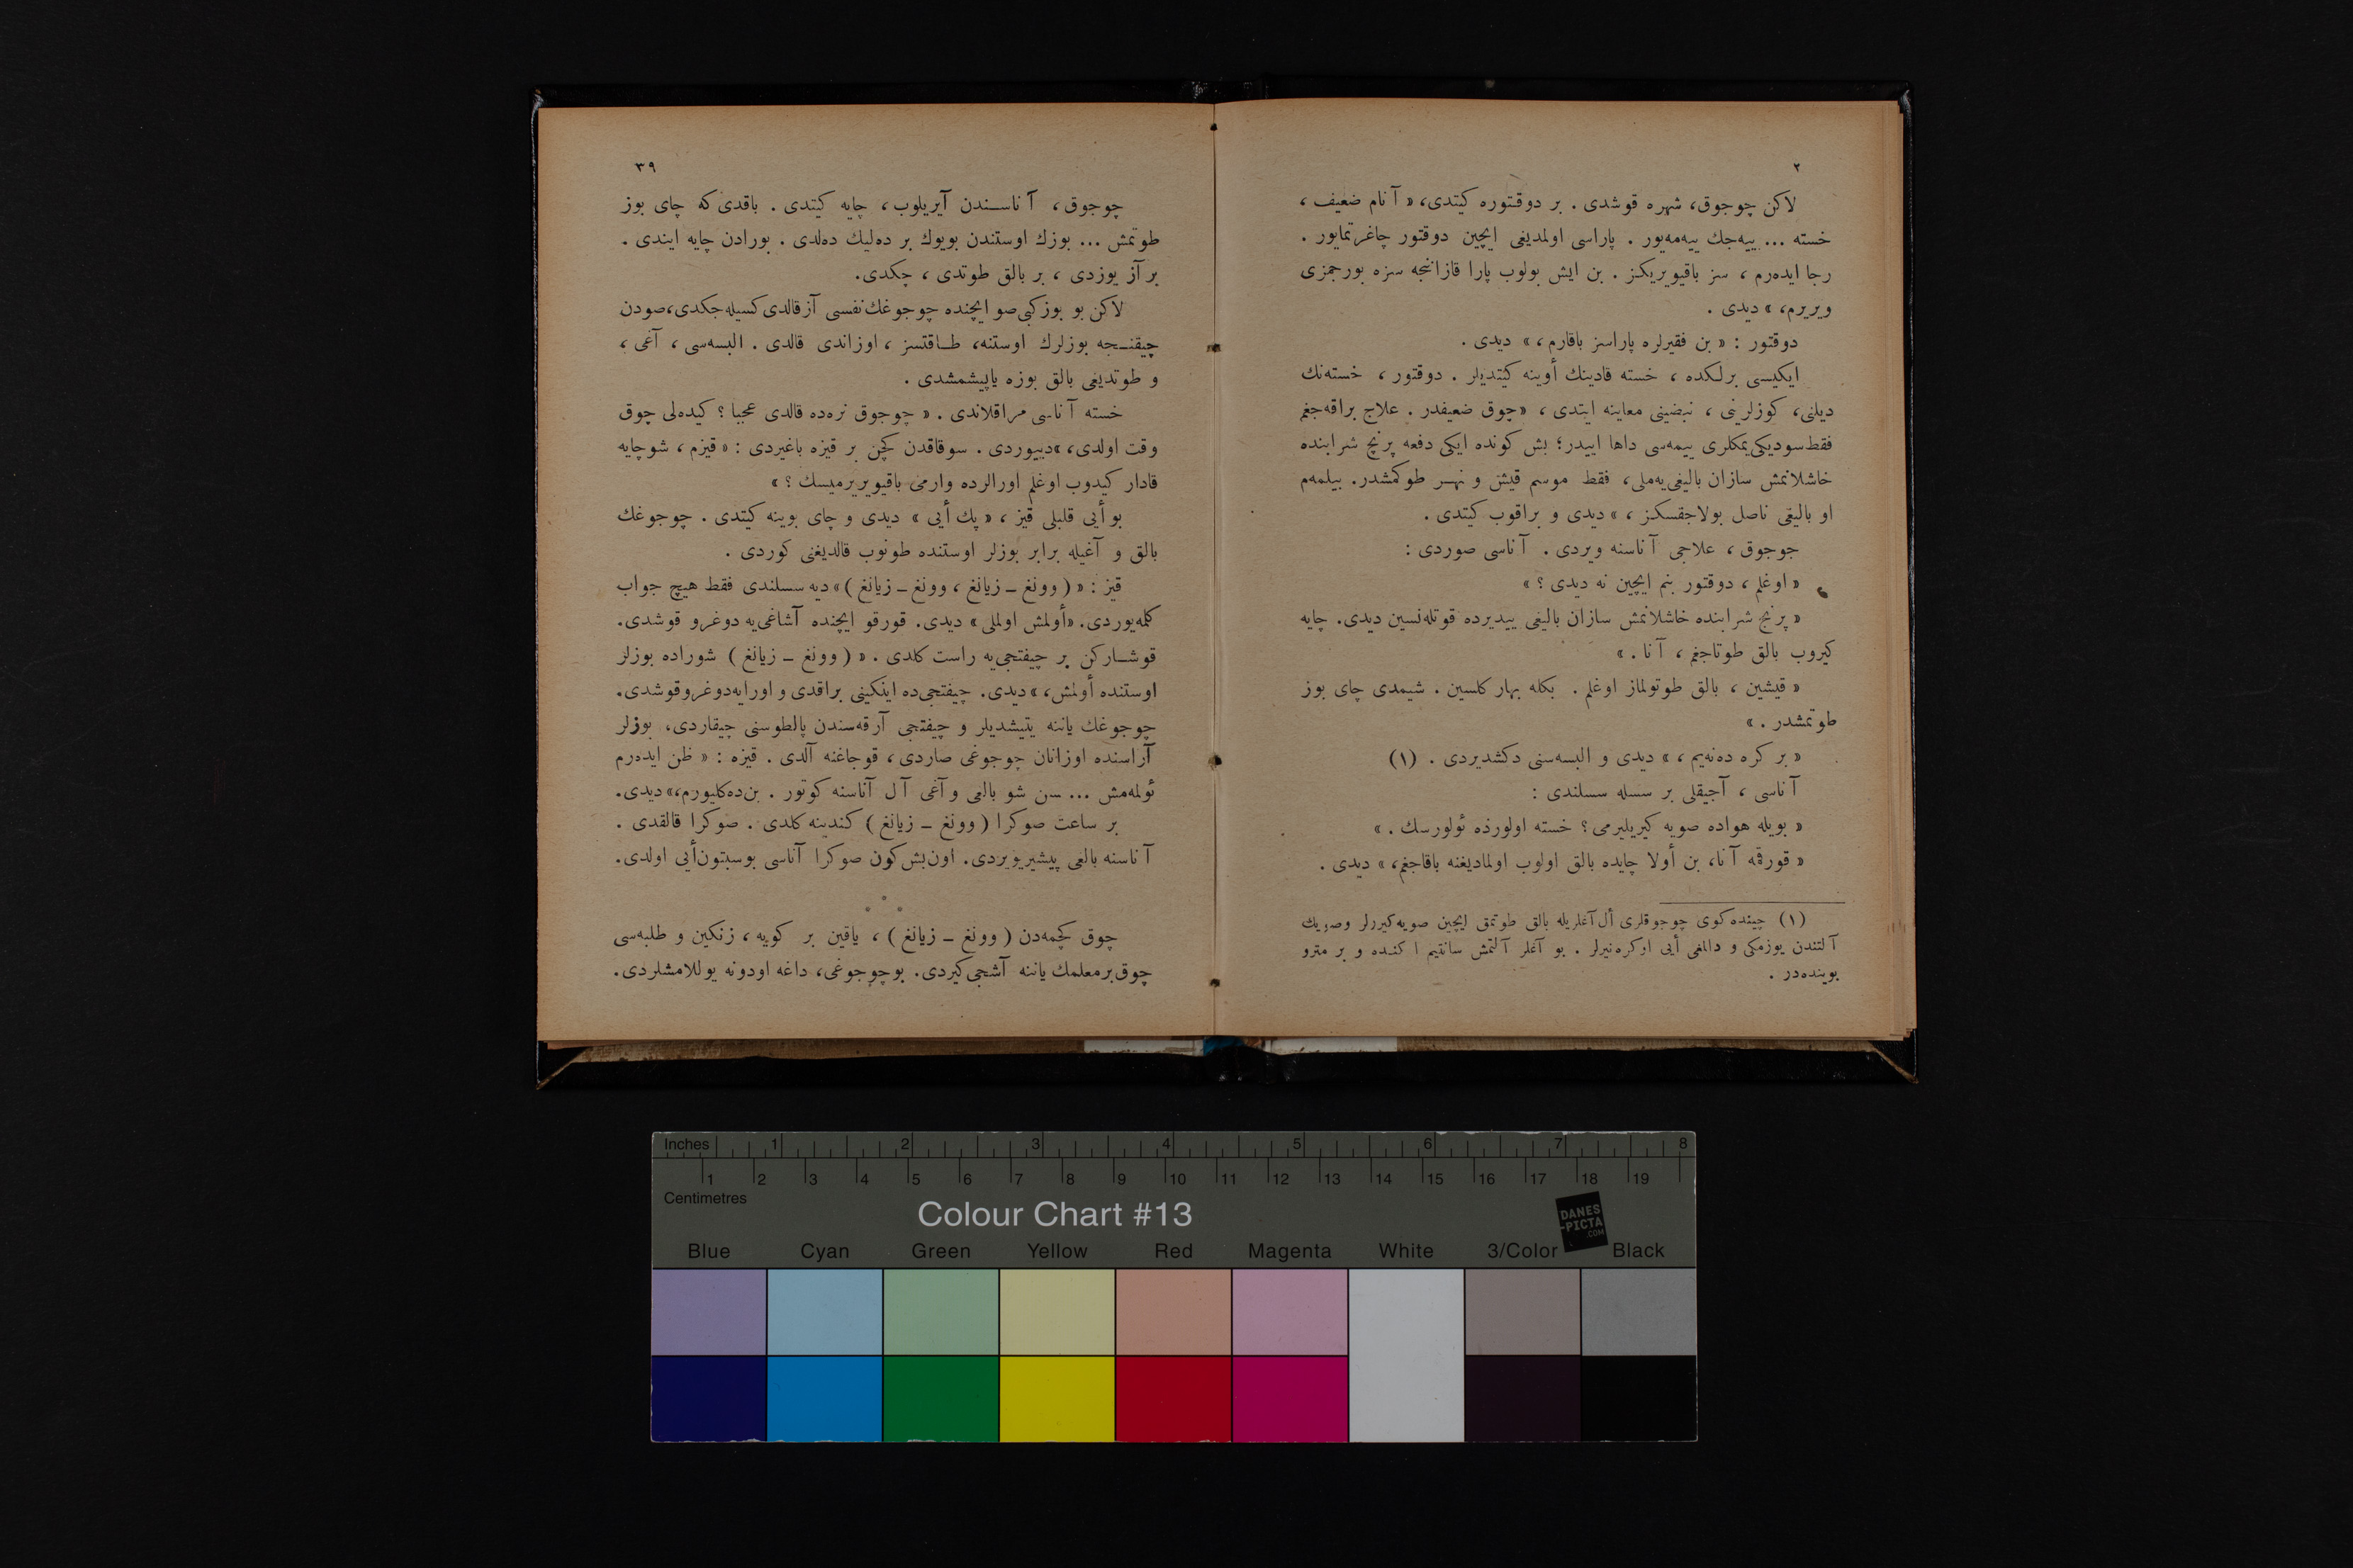 ٢
لاكن چوجوق، شهره قوشدی . بر دوقتوره كيتدی، « آنام ضعيف ،
خسته ... ييه‌جك ييه‌مه‌يور . پاراسی اولمديغی ايچين دوقتور چاغرتمايور .
رجا ايده‌رم ، سز باقيويريكز . بن ايش بولوب پارا قازاننجه سزه بورجمزی
ويريرم، » ديدی .
دوقتور : « بن فقيرلره پاراسز باقارم ، » ديدی .
ايكيسی برلكده ، خسته قادينك أوينه كيتديلر . دوقتور ، خسته‌نك
ديلنی، كوزلرينی ، نبضينی معاينه ايتدی ، « چوق ضعيفدر . علاج براقه‌جغم
فقط سوديكی يمكلری ييمه‌سی داها اييدر؛ بش كونده ايكی دفعه پرنج شرابنده
خاشلانمش سازان باليغی يه‌ملی، فقط موسم قيش و نهر طوكمشدر. بيلمه‌م
او باليغی ناصل بولاجقسكز ، » ديدی و براقوب كيتدی .
جوجوق ، علاجی آناسنه ويردی . آناسی صوردی :
« اوغلم ، دوقتور بنم ايچين نه ديدی ؟ »
« پرنج شرابنده خاشلانمش سازان باليغی ييديرده قوتله‌نسين ديدی. چايه
كيروب بالق طوتاجغم ، آنا . »
« قيشين ، بالق طوتولماز اوغلم . بكله بهار كلسين . شيمدی چای بوز
طوتمشدر . »
« بر كره ده‌نه‌يم ، » ديدی و البسه‌سنی دكشديردی . (١)
آناسی ، آجيقلی بر سسله سسلندی :
« بويله هواده صويه كيريليرمی ؟ خسته اولورده ئولورسك . »
« قورقمه آنا، بن أولا چايده بالق اولوب اولماديغنه باقاجغم، » ديدی .
(١) چينده كوی چوجوقلری أل آغلريله بالق طوتمق ايچين صويه كيررلر وصويك
آلتندن يوزمكی و دالمغی أيی اوكره‌نيرلر . بو آغلر آلتمش سانتيم ا كنده و بر مترو
بوينده‌در .
٣٩
چوجوق، آناسندن آيريلوب، چايه كيتدی . باقدی كه چای بوز
طوتمش ... بوزك اوستندن بويوك بر ده‌ليك ده‌لدی . بورادن چايه ايندی .
بر آز يوزدی ، بر بالق طوتدی ، چكدی.
لاكن بو بوز كبی صو ايچنده چوجوغك نفسی آز قالدی كسيله‌جكدی، صودن
چيقنجه بوزلرك اوستنه، طاقتسز ، اوزاندی قالدی . البسه‌سی ، آغی ،
و طوتديغی بالق بوزه ياپيشمشدی .
خسته آناسی مراقلاندی . « چوجوق نره‌ده قالدی عجبا ؟ كيده‌لی چوق
وقت اولدی، » ديیوردی . سوقاقدن كچن بر قيزه باغيردی : « قيزم ، شو چايه
قادار كيدوب اوغلم اورالرده وارمی باقيويريرميسك ؟ »
بو أيی قلبلی قيز ، « پك أيی » ديدی و چای بوينه كيتدی . چوجوغك
بالق و آغيله برابر بوزلر اوستنده طونوب قالديغنی كوردی .
قيز : « ( وونغ ـ زيانغ ، وونغ ـ زيانغ ) » ديه سسلندی فقط هيچ جواب
كلمه‌يوردی. « أولمش اولملی » ديدی. قورقو ايچنده آشاغی‌يه دوغرو قوشدی.
قوشاركن بر چيفتجی‌يه راست كلدی . « ( وونغ ـ زيانغ ) شوراده بوزلر
اوستنده أولمش، » ديدی. چيفتجی‌ده اينكينی براقدی و اورايه دوغرو قوشدی.
چوجوغك ياننه يتيشديلر و چيفتجی آرقه‌سندن پالطوسنی چيقاردی، بوزلر
آراسنده اوزانان چوجوغی صاردی ، قوجاغنه آلدی . قيزه : « ظن ايده‌رم
ئولمه‌مش ... سن شو بالغی و آغی آل آناسنه كوتور . بن‌ده كليورم، » ديدی.
بر ساعت صوكرا ( وونغ ـ زيانغ ) كندينه كلدی . صوكرا قالقدی .
آناسنه بالغی پيشيريويردی. اون بش كون صوكرا آناسی بوسبتون أيی اولدی.
چوق كچمه‌دن ( وونغ ـ زيانغ ) ، ياقين بر كويه ، زنكين و طلبه‌سی
چوق بر معلمك ياننه آشجی كيردی. بو چوجوغی، داغه اودونه يوللامشلردی.
Inches 1 2 3 4 5 6 7 8
1 2 3 4 5 6 7 8 9 10 11 12 13 14 15 16 17 18 19
Centimetres
Colour Chart #13
DANES
-PICTA
.COM
Blue Cyan Green Yellow Red Magenta White 3/Color Black